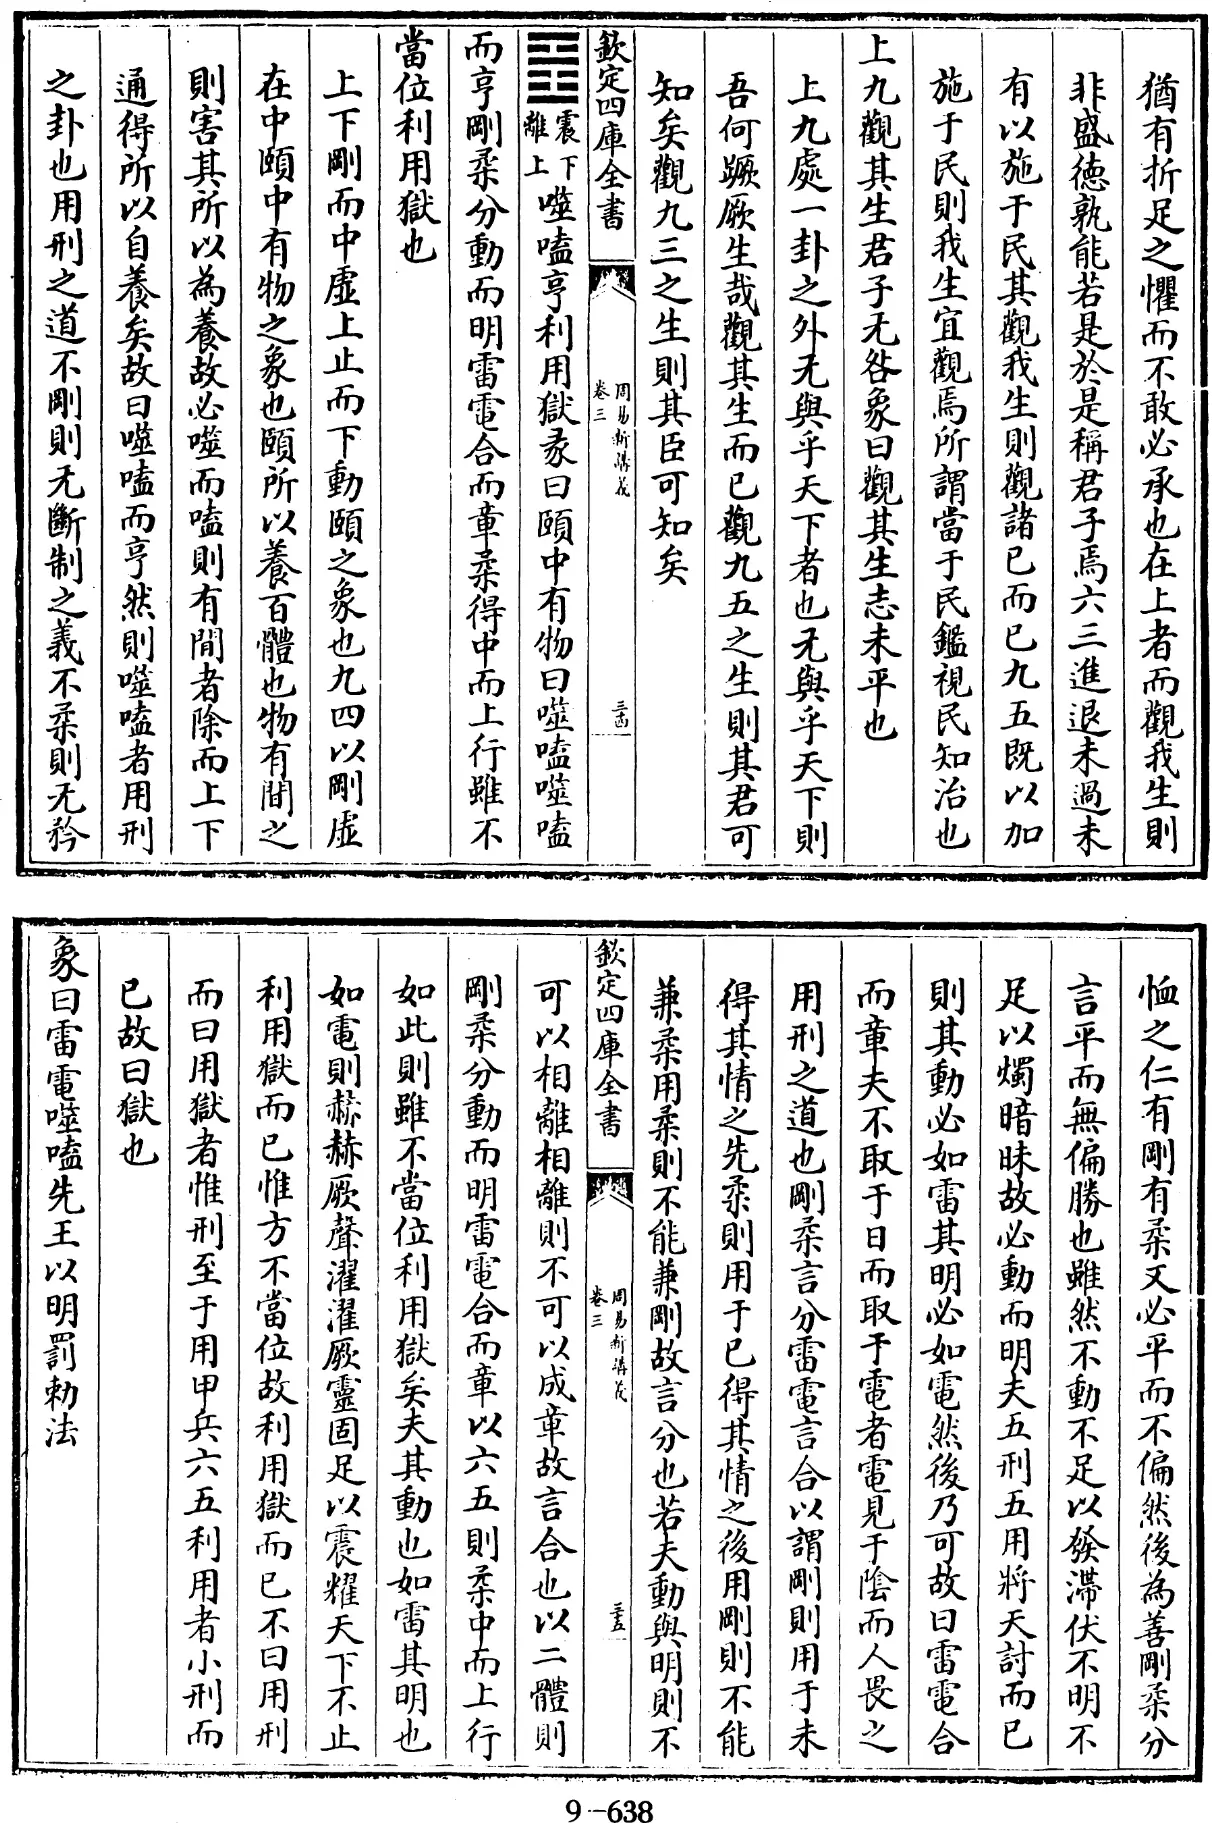 猶有折足之懼而不敢必承也在上者而觀我生則
非盛德孰能若是於是稱君子焉六三進退未過未
有以施于民其觀我生則觀諸已而已九五既以加
施于民則我生宜觀焉所謂當于民鑑視民知治也
上九觀其生君子无咎象曰觀其生志未平也
上九處一卦之外无與乎天下者也无與乎天下則
吾何蹶厥生哉觀其生而已觀九五之生則其君可
知矣觀九三之生則其臣可知矣
欽定四庫全書
周易新講義
卷三
三十四
震下
離上
噬嗑亨利用獄彖曰頤中有物曰噬嗑噬嗑
而亨剛柔分動而明雷電合而章柔得中而上行雖不
當位利用獄也
上下剛而中虛上止而下動頤之象也九四以剛虛
在中頤中有物之象也頤所以養百體也物有間之
則害其所以為養故必噬而嗑則有間者除而上下
通得所以自養矣故曰噬嗑而亨然則噬嗑者用刑
之卦也用刑之道不剛則无斷制之義不柔則无矜
恤之仁有剛有柔又必平而不偏然後為善剛柔分
言平而無偏勝也雖然不動不足以發滯伏不明不
足以燭暗昧故必動而明夫五刑五用將天討而已
則其動必如雷其明必如電然後乃可故曰雷電合
而章夫不取于日而取于電者電見于陰而人畏之
用刑之道也剛柔言分雷電言合以謂剛則用于未
得其情之先柔則用于已得其情之後用剛則不能
兼柔用柔則不能兼剛故言分也若夫動與明則不
欽定四庫全書
周易新講義
卷三
三十五
可以相離相離則不可以成章故言合也以二體則
剛柔分動而明雷電合而章以六五則柔中而上行
如此則雖不當位利用獄矣夫其動也如雷其明也
如電則赫赫厥聲濯濯厥靈固足以震耀天下不止
利用獄而已惟方不當位故利用獄而已不曰用刑
而曰用獄者惟刑至于用甲兵六五利用者小刑而
已故曰獄也
象曰雷電噬嗑先王以明罰勅法
9-638